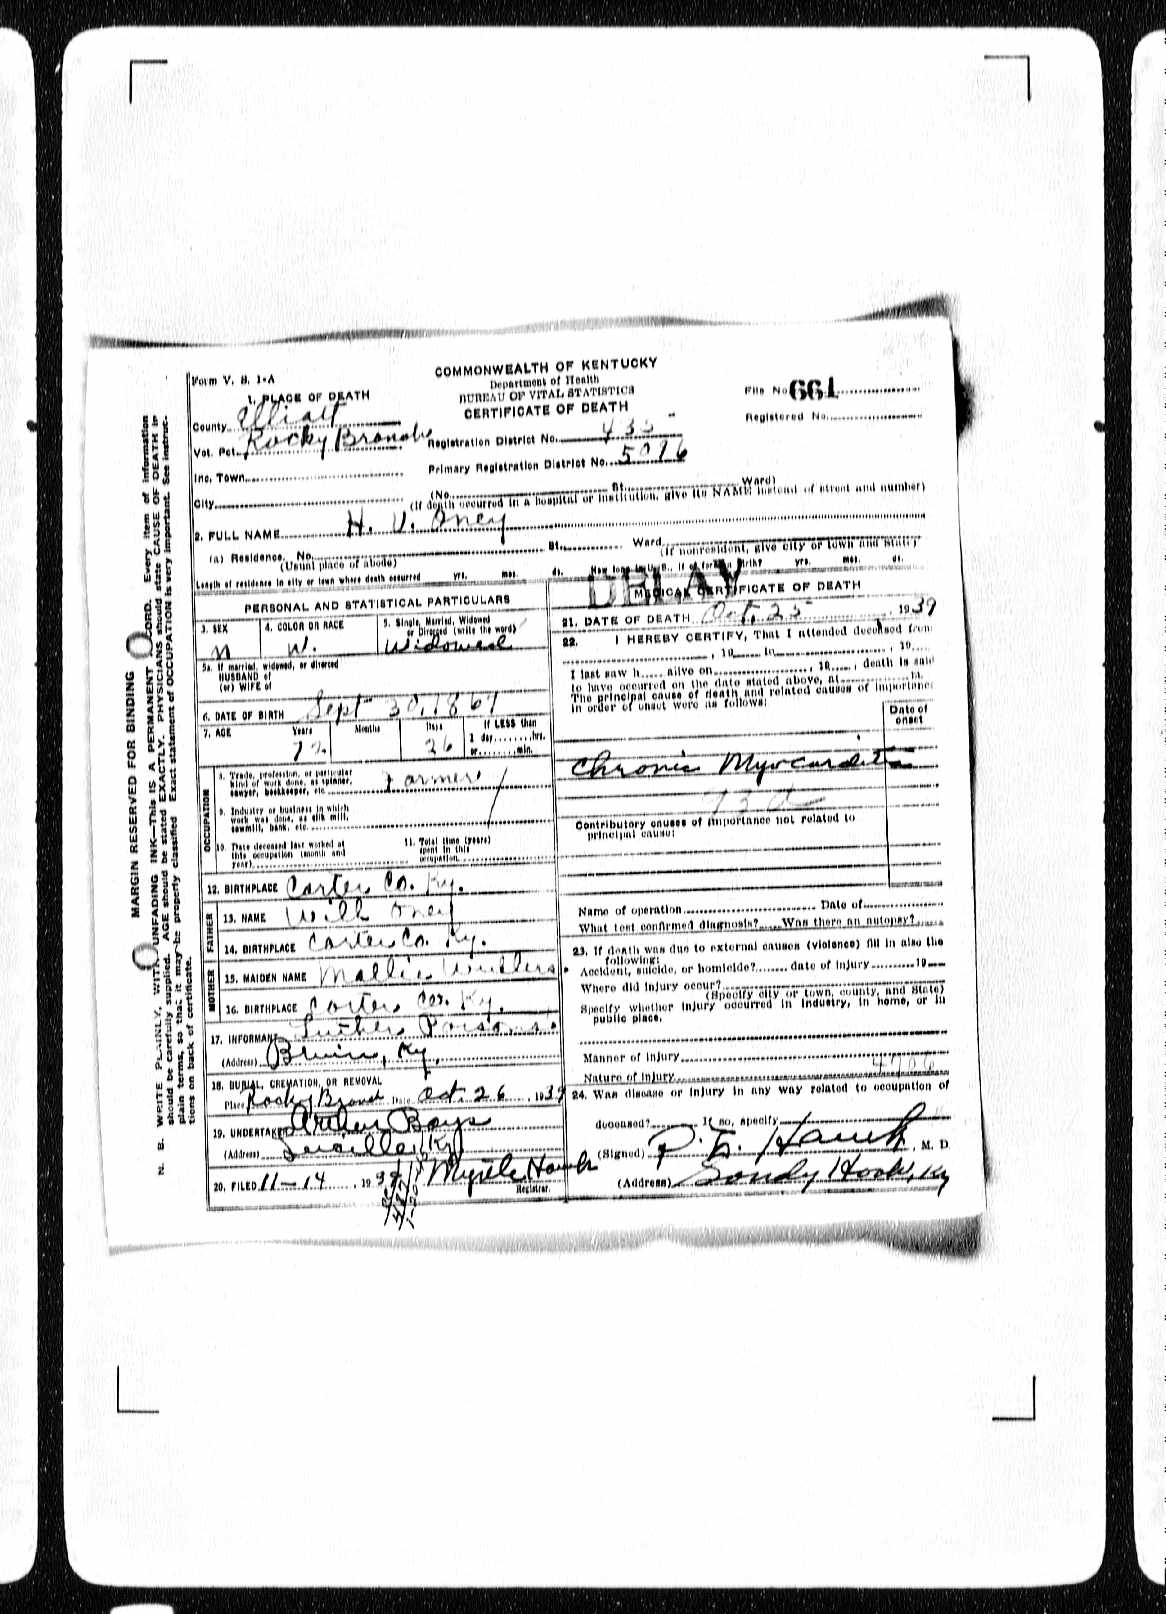 Form V. S. 1-A
COMMONWEALTH OF KENTUCKY
Department of Health
BUREAU OF VITAL STATISTICS
CERTIFICATE OF DEATH
File No. 661
Registered No.
1. PLACE OF DEATH
County Elliott
Vot. Pct. Rocky Branch
Registration District No. 435
Inc. Town
Primary Registration District No. 5016
City (No. St. Ward)
(If death occurred in a hospital or institution, give its NAME instead of street and number)
2. FULL NAME H. V. Oney
(a) Residence. No. St. Ward
(Usual place of abode) (If nonresident, give city or town and State)
Length of residence in city or town where death occurred yrs. mos. ds. How long in U. S., if of foreign birth? yrs. mos. ds.
DELAY
PERSONAL AND STATISTICAL PARTICULARS
3. SEX 4. COLOR OR RACE 5. Single, Married, Widowed
or Divorced (write the word)
M W. Widowed
5a. If married, widowed, or divorced
HUSBAND of
(or) WIFE of
6. DATE OF BIRTH Sept 30, 1867
7. AGE Years Months Days If LESS than
1 day hrs.
72 26 or min.
OCCUPATION
8. Trade, profession, or particular
kind of work done, as spinner,
sawyer, bookkeeper, etc. Farmer
9. Industry or business in which
work was done, as silk mill,
sawmill, bank, etc.
10. Date deceased last worked at
this occupation (month and
year)
11. Total time (years)
spent in this
occupation
12. BIRTHPLACE Carter Co. Ky.
FATHER
13. NAME Will Oney
14. BIRTHPLACE Carter Co. Ky.
MOTHER
15. MAIDEN NAME Mallie
16. BIRTHPLACE Carter Co. Ky.
17. INFORMANT Luther Parsons
(Address) Bruin, Ky.
18. BURIAL, CREMATION, OR REMOVAL
Place Rocky Branch Date Oct. 26, 1939
19. UNDERTAKER Arthur Bays
(Address) Lucille, Ky
20. FILED 11-14, 1939 Myrtle Hawk
Registrar.
MEDICAL CERTIFICATE OF DEATH
21. DATE OF DEATH Oct. 25, 1939
22. I HEREBY CERTIFY, That I attended deceased from
, 19 to , 19
I last saw h alive on , 19 , death is said
to have occurred on the date stated above, at m.
The principal cause of death and related causes of importance
in order of onset were as follows:
Date of
onset
Chronic Myocarditis
93 a
Contributory causes of importance not related to
principal cause:
Name of operation Date of
What test confirmed diagnosis? Was there an autopsy?
23. If death was due to external causes (violence) fill in also the
following:
Accident, suicide, or homicide? date of injury 19
Where did injury occur?
(Specify city or town, county, and State)
Specify whether injury occurred in industry, in home, or in
public place.
Manner of injury
Nature of injury
24. Was disease or injury in any way related to occupation of
deceased? If so, specify
(Signed) , M. D.
(Address) Sandy Hook, Ky
MARGIN RESERVED FOR BINDING
N. B. WRITE PLAINLY, WITH UNFADING INK—THIS IS A PERMANENT RECORD. Every item of information
should be carefully supplied. AGE should be stated EXACTLY. PHYSICIANS should state CAUSE OF DEATH in
plain terms, so that it may be properly classified. Exact statement of OCCUPATION is very important. See instruc-
tions on back of certificate.